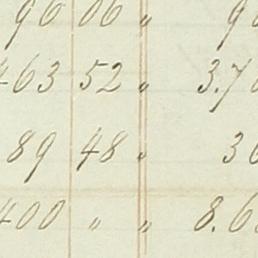 96 06 "
463 52 " 3.7
89 48 " 36
400 " " 8.6